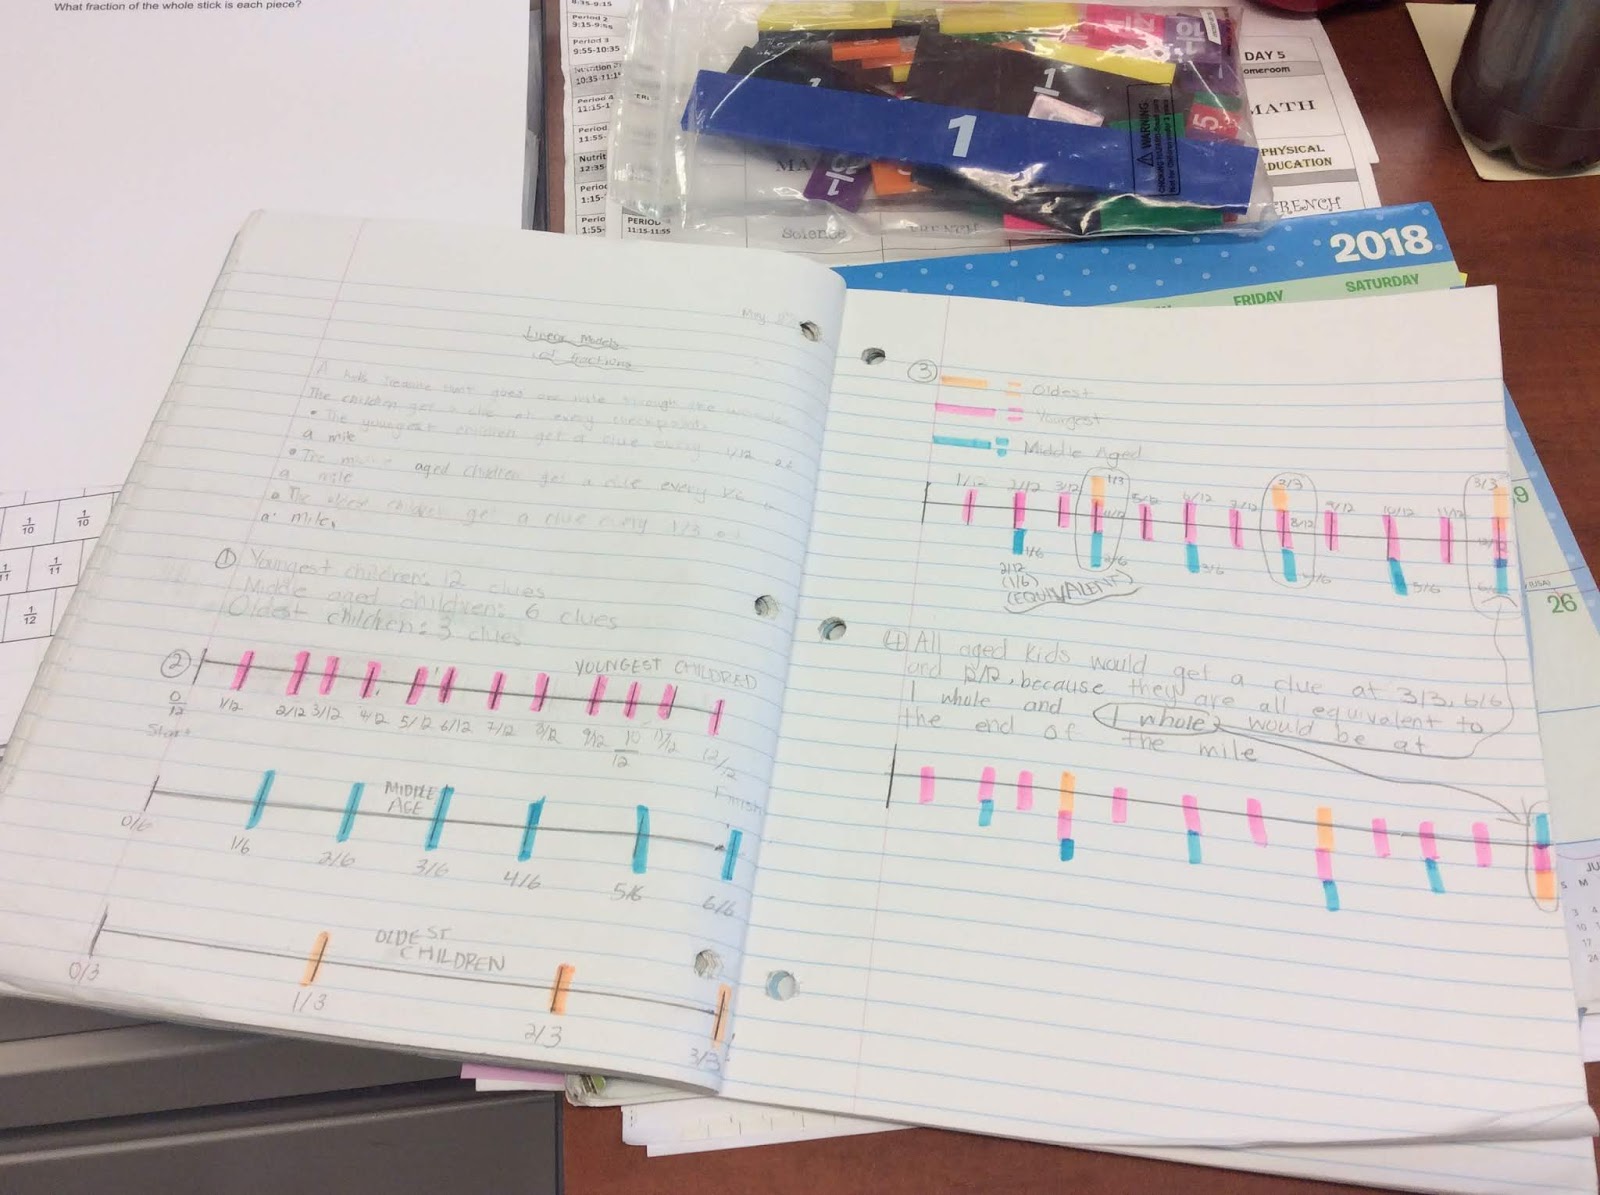 What fraction of the whole stick is each piece?
9:35-9:15
Period 2
9:15-9:55
Period 3
9:55-10:35
10:35-11:15
Period 4
11:15-1
Period
11:55-
Nutrit
12:35-
Perio
1:15-
Perio
1:55-
PERIOD
11:15-11:55
Science
FRENCH
MA
1
1
1
5
WARNING
DAY 5
omeroom
MATH
PHYSICAL
EDUCATION
FRENCH
2018
FRIDAY
SATURDAY
19
26
JU
S M
3 4
10
17
24
1/10
1/10
1/11
1/11
1/12
May
Linear Models
of fractions
A treasure hunt goes one mile through the
The children get a clue at every checkpoint.
• The youngest children get a clue every 1/12 of
a mile
• The aged children get a clue every 1/6
a mile
• The oldest children get a clue every 1/3 of
a mile.
① Youngest children: 12 clues
Middle aged children: 6 clues
Oldest children: 3 clues
② YOUNGEST CHILDRED
0/12 1/12 2/12 3/12 4/12 5/12 6/12 7/12 8/12 9/12 10/12 11/12 12/12
Start
Finish
MIDDLE
AGE
0/6 1/6 2/6 3/6 4/6 5/6 6/6
OLDEST
CHILDREN
0/3 1/3 2/3 3/3
③ = Oldest
= Youngest
= Middle Aged
1/3 2/3 3/3
1/12 2/12 3/12 4/12 5/12 6/12 7/12 8/12 9/12 10/12 11/12 12/12
1/6 2/6 3/6 4/6 5/6 6/6
2/12
(1/6)
(EQUIVALENT)
④ All aged kids would get a clue at 3/3, 6/6
and 12/12, because they are all equivalent to
1 whole and 1 whole would be at
the end of the mile